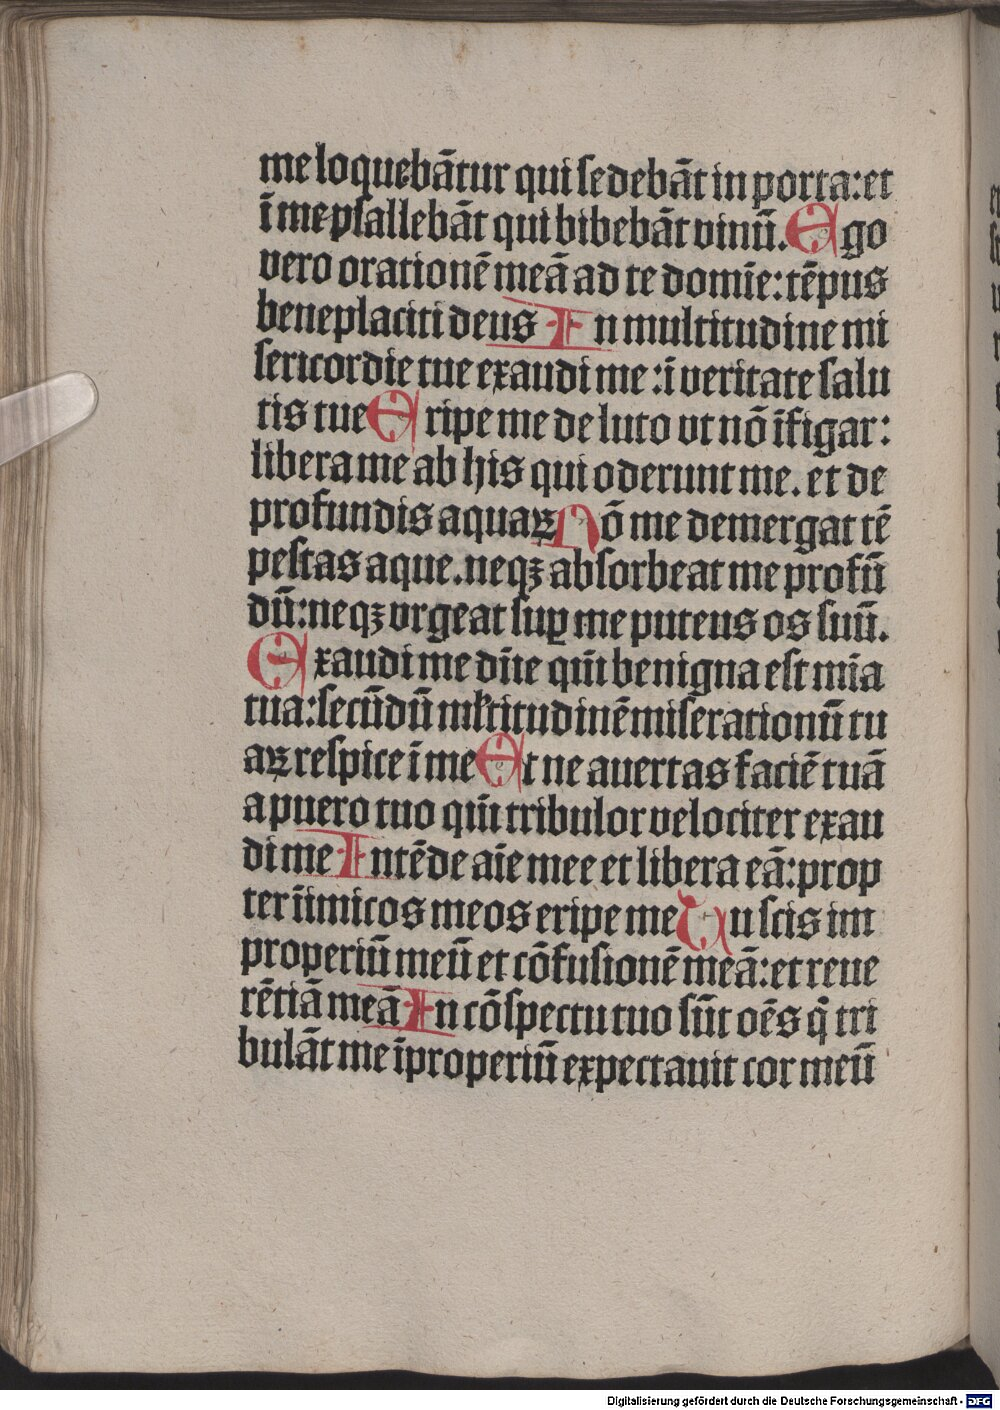 me loquebātur qui sedebāt in porta: et
ī me psallebāt qui bibebāt vinū. Ego
vero orationē meā ad te domīe: tēpus
beneplaciti deus In multitudine mi
sericordie tue exaudi me: ī veritate salu
tis tue Eripe me de luto vt nō īfigar:
libera me ab his qui oderunt me. et de
profundis aquaꝝ Nō me demergat tē
pestas aque. neqꝫ absorbeat me profū
dū: neqꝫ vrgeat suꝑ me puteus os suū.
Exaudi me dn̄e qm̄ benigna est mīa
tua: secūdū mĺtitudinē miserationū tu
aꝝ respice ī me Et ne auertas faciē tuā
a puero tuo qm̄ tribulor velociter exau
di me Intēde aīe mee et libera eā: prop
ter īimicos meos eripe me Tu scis im
properiū meū et cōfusionē meā: et reue
rētiā meā In cōspectu tuo sūt oēs q̄ tri
bulāt me īproperiū expectauit cor meū
Digitalisierung gefördert durch die Deutsche Forschungsgemeinschaft - DFG